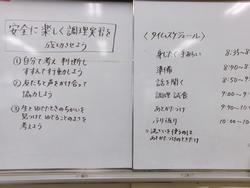 安全に楽しく調理実習を
成功させよう
① 自分で考え判断し
すすんで行動しよう
② 友だちと声をかけ合って
協力しよう
③ 生とゆでたときのちがいを
見つけて ゆでることのよさを
考えよう
〈タイムスケジュール〉
身じたく 手あらい 8:35~8
準備 8:40~8
話を聞く 8:50~
調理 試食 9:00~
あとかたづけ 9:
ふり返り 10: